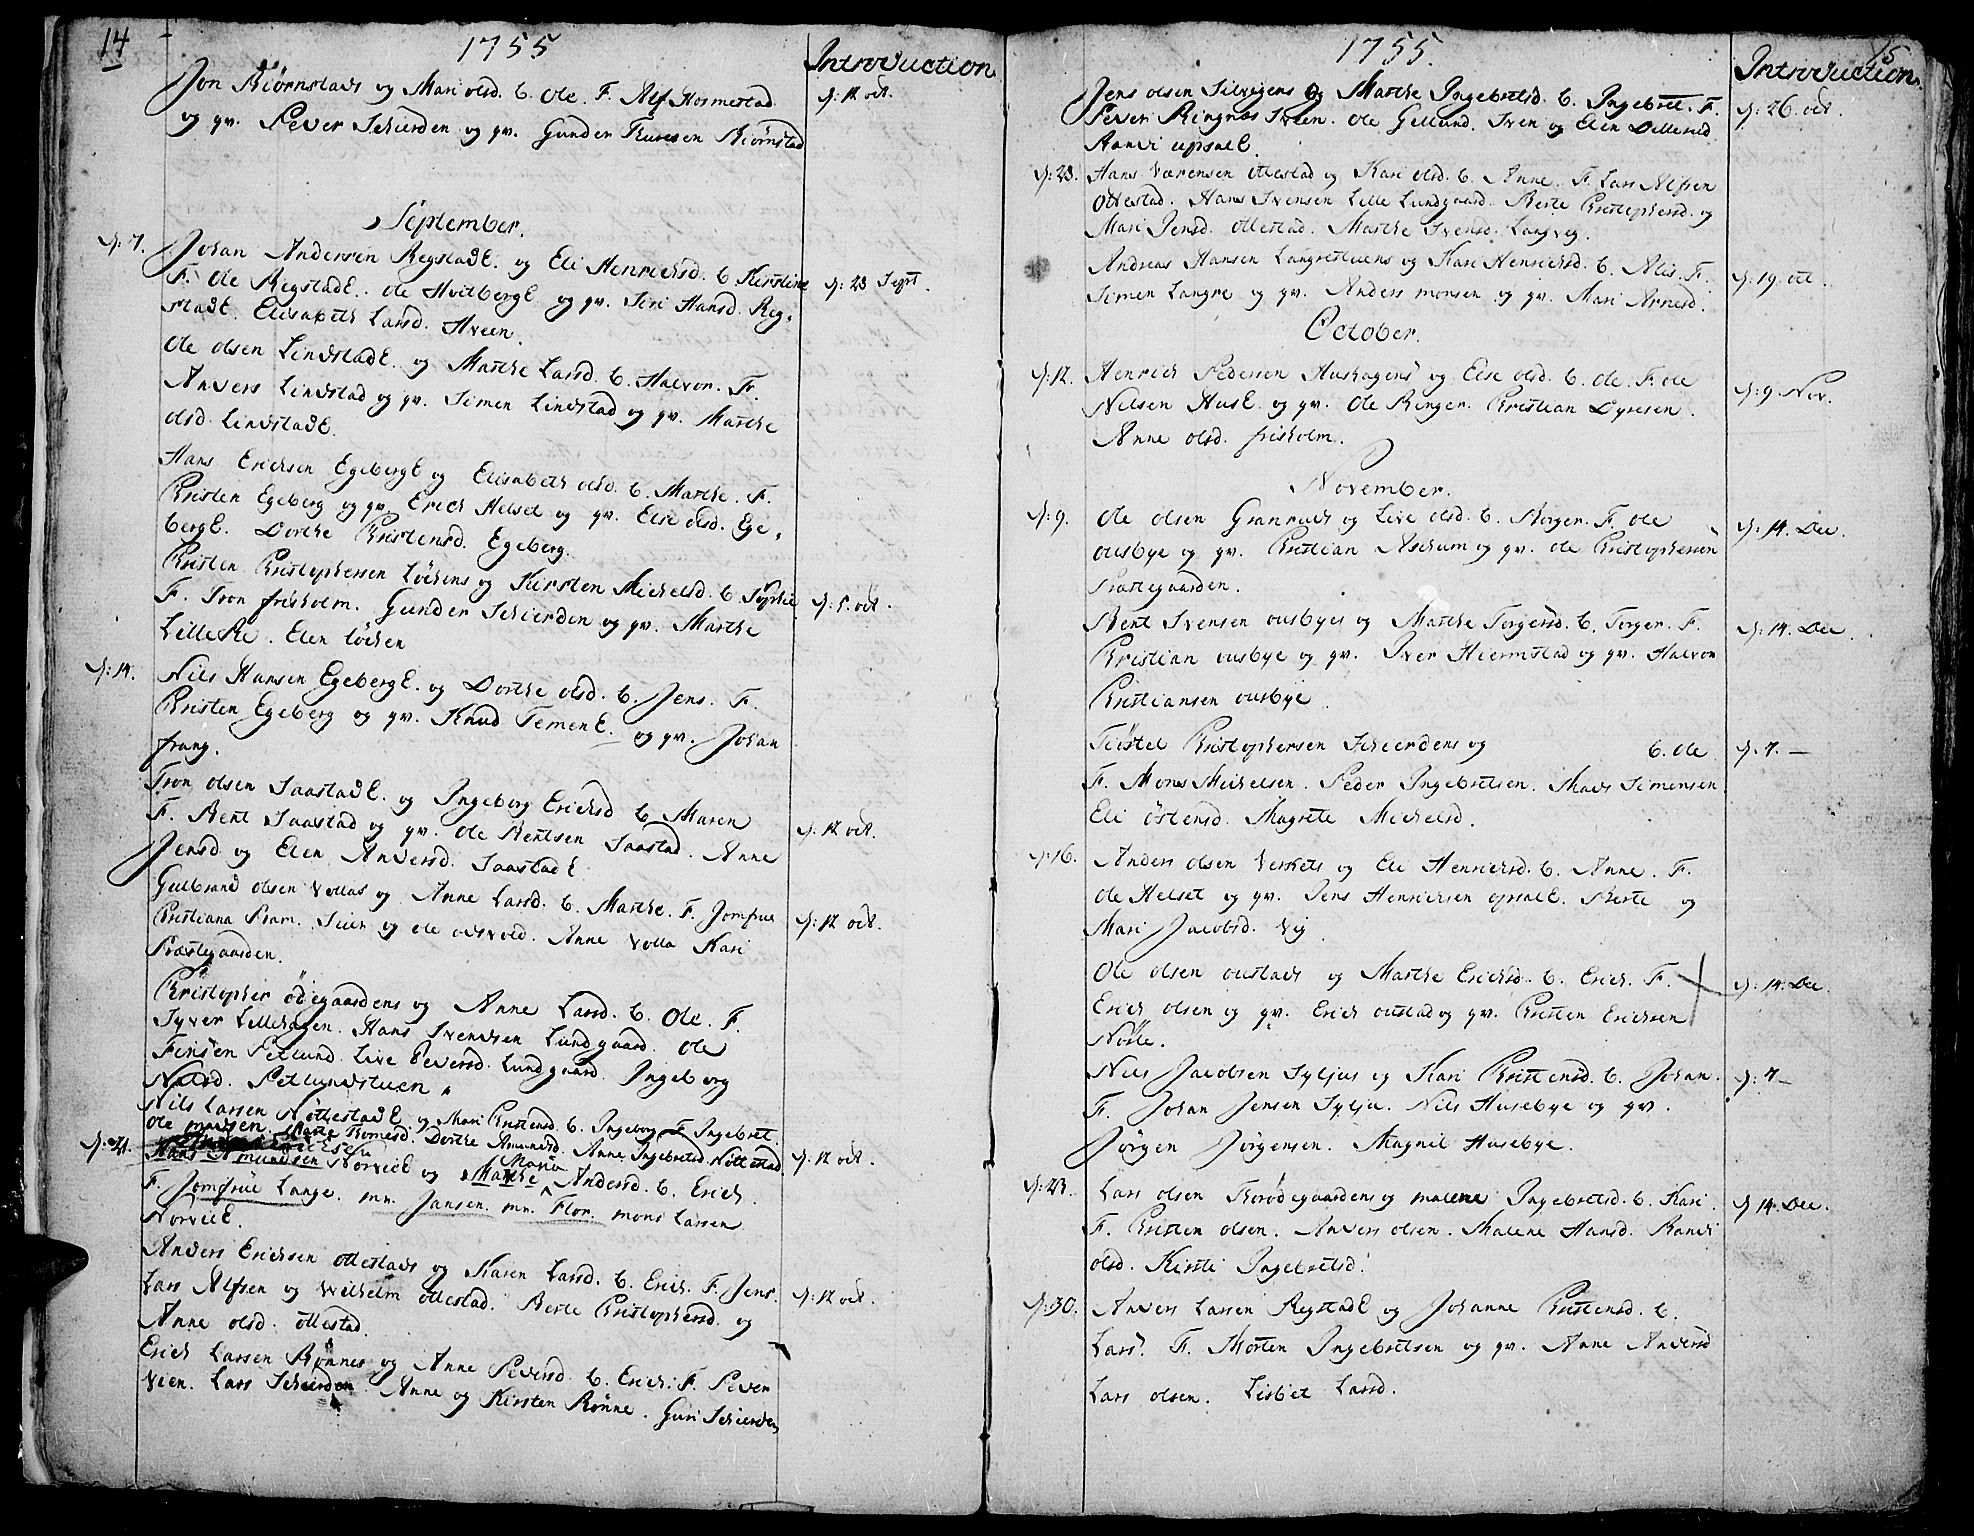 14
1755
Introduction
Jon Biørnstads og Mari olsd. b. Ole. F. Alf Hosmestad
d: 12 oct.
og qv. Peder Schierden og qv. Gunder Thuresen Biørnstad
September.
d: 7. Johan Andersen Regstads. og Eli Henrichsd. b. Kirstine
F. Ole Regstads. Ole Huitbergs og qv. Siri Hansd. Reg-
d: 23 Sept.
stads. Elisabeth Larsd. Hveen.
Ole olsen Lindstads. og Marthe Larsd. b. Halvor. F.
Anders Lindstad og qv. Simen Lindstad og qv. Marthe
olsd. Lindstads.
Hans Erichsen Egebergs og Elisabeth olsd. b. Marthe. F.
Christen Egeberg og qv. Erich Helset og qv. Else olsd. Ege-
bergs. Dorthe Christensd. Egeberg.
Christen Christophersen Löchens og Kirsten Michelsd. b. Sophie
F. Tron frisholm. Gunder Schierden og qv. Marthe
d: 5. oct.
Lilleske. Elen löchen
d: 14. Nils Hansen Egebergs. og Dorthe olsd. b. Jens. F.
Christen Egeberg og qv. Knud Temens. og qv. Johan
frang.
Tron olsen Saastads. og Ingeborg Erichsd. b. Maren
F. Bent Saastad og qv. Ole Bentsen Saastad. Anne
d: 12 oct.
Jensd. og Elen Andersd. Saastads.
Gulbrand olsen Vollas og Anne Larsd. b. Marthe. F. Jomfrue
Christiana Pram. Siier og ole odsvold. Anne Volla Kari
d: 12 oct.
Præstegaarden.
Christopher ödegaardens og Anne Larsd. b. Ole. F.
Syver Lillehagen. Hans Svendsen Lundgaard. Ole
Finsen Petlund. Live Pedersd. Lundgaard. Ingeborg
Nilsd. Petlundstuen.
Nils Larsen Nöttestads og Mari Christensd. b. Ingeborg. F. Ingebret.
ole madsen. Marte Tomesd. Dorthe Amundsd. Anne Ingebretsd. Nöttestad
d: 21. Hans Amundsen Norviks og Marthe Maria Andersd. b. Erich.
d: 12 oct.
F. Jomfrue Lange. mr. Jansen. mr. Flor. mons Larsen
Norviks.
Anders Erichsen ottestads og Karen Larsd. b. Erich. F. Jens.
Lars Alfsen og Wilhelm ottestad. Berte Christophersd. og
d: 12 oct.
Anne olsd. ottestad.
Erich Larsen Rønnes og Anne Pedersd. b. Erich. F. Peder
Veen. Lars Schierden. Anne og Kirsten Rønne. Guri Schierden
15
1755.
Introduction.
Jens olsen Silvigens og Marthe Ingebretsd. b. Ingebret. F.
d: 26. oct.
Peder Ringnæs Sveen. Ole Gillund. Sven og Elen Dillerud
Randi upsals.
d: 28. Hans Larensen ottestad og Kari olsd. b. Anne. F. Lars Alfsen
Ottestad. Hans Svensen Lille Lundgaard. Berte Christophersd. og
Mari Jensd. ottestad. Marthe Svensd. Langvig.
Andreas Hansen Langretstuens og Kari Henrichsd. b. Alis. F.
d: 19. oct.
Simen Langre og qv. Anders monsen og qv. Mari Arnesd.
October.
d: 12. Henrich Pedersen Aushagens og Else olsd. b. Ole. F. Ole
d: 9. Nov.
Nilsen Huse. og qv. Ole Ringer. Christian Dyresen.
Anne olsd. frisholm.
November.
d: 9. Ole olsen Granruds og Live olsd. b. Borger. F. Ole
d: 14. Dec.
ousbye og qv. Christian Aschum og qv. Ole Christophersen
Prestegaarden.
Bent Svensen ousbyes og Marthe Torgersd. b. Torger. F.
d: 14. Dec.
Christian ousbye og qv. Iver Hiermstad og qv. Halvor
Christiansen ousbye.
Tiøstel Christophersen Schierdens og b. Ole
d: 7. —
F. Mons Michelsen. Peder Ingebretsen. Mads Simensen
Eli östensd. Magrete Michelsd.
d: 16. Anders olsen Verstets og Eli Henrichsd. b. Anne. F.
Ole Helset og qv. Jens Henrichsen opsals. Berte og
Mari Jacobsd. Vig
Ole olsen oustads og Marthe Erichsd. b. Erich. F.
d: 14. Dec.
Erich olsen og qv. Erich oustad og qv. Christen Erichsen
Nøtle.
Nils Jacobsen Syljus og Kari Christensd. b. Johan.
d: 7 —
F. Johan Jensen Sylju. Nils Husebye og qv.
Jörgen Jörgensen. Magnil Husebye.
d: 23. Lars olsen Thorødegaardens og malene Ingebretsd. b. Kari.
d 14. Dec.
F. Christen olsen. Anders olsen. Malene Hansd. Randi
olsd. Kirsti Ingebretsd.
d: 30. Anders Larsen Regstads og Johanne Christensd. b.
Lars. F. Morten Ingebretsen og qv. Anne Andersd
Lars olsen. Lisbet Larsd.